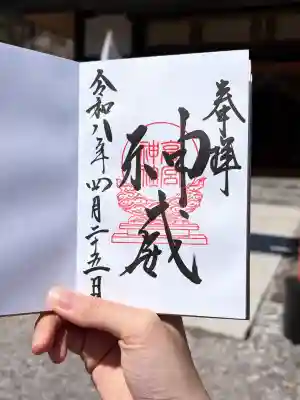 奉拝
神威
令和八年四月二十五日